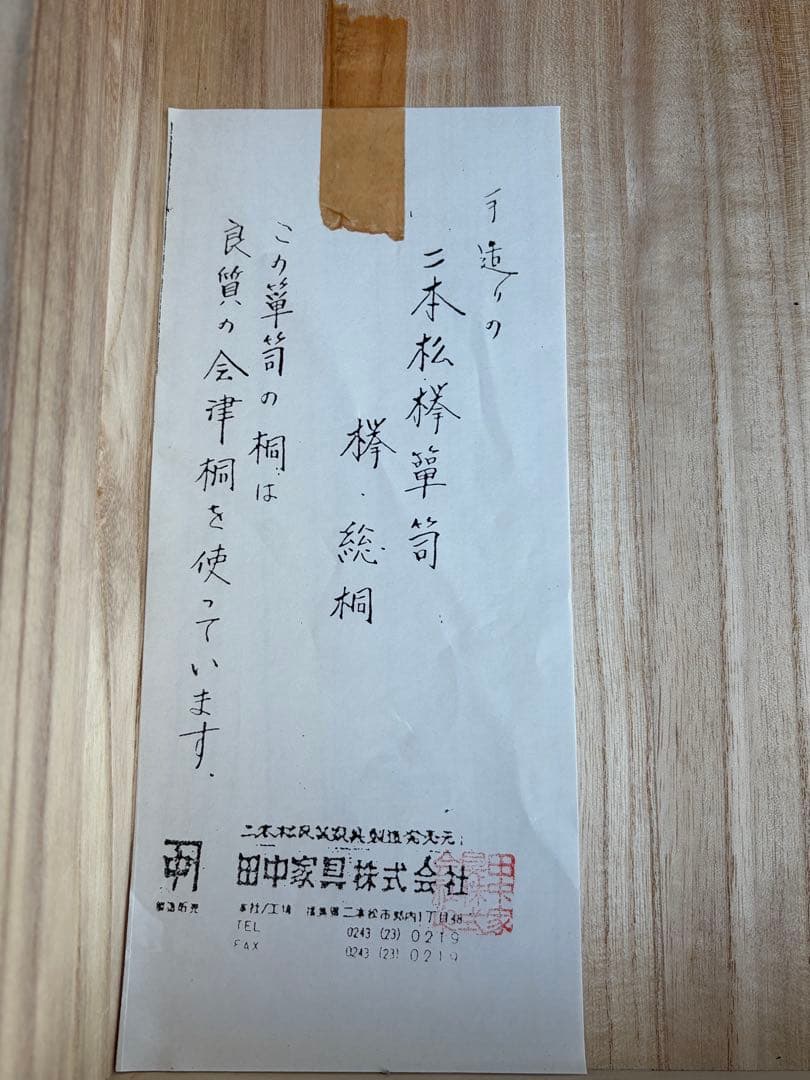 手造りの
二本松欅箪笥
欅・総桐
この箪笥の桐は
良質の会津桐を使っています.
二本松民芸家具製造発売元
田中家具株式会社
製造販売
本社/工場 福島県二本松市郭内1丁目
TEL 0243 (23) 0219
FAX 0243 (23) 0219